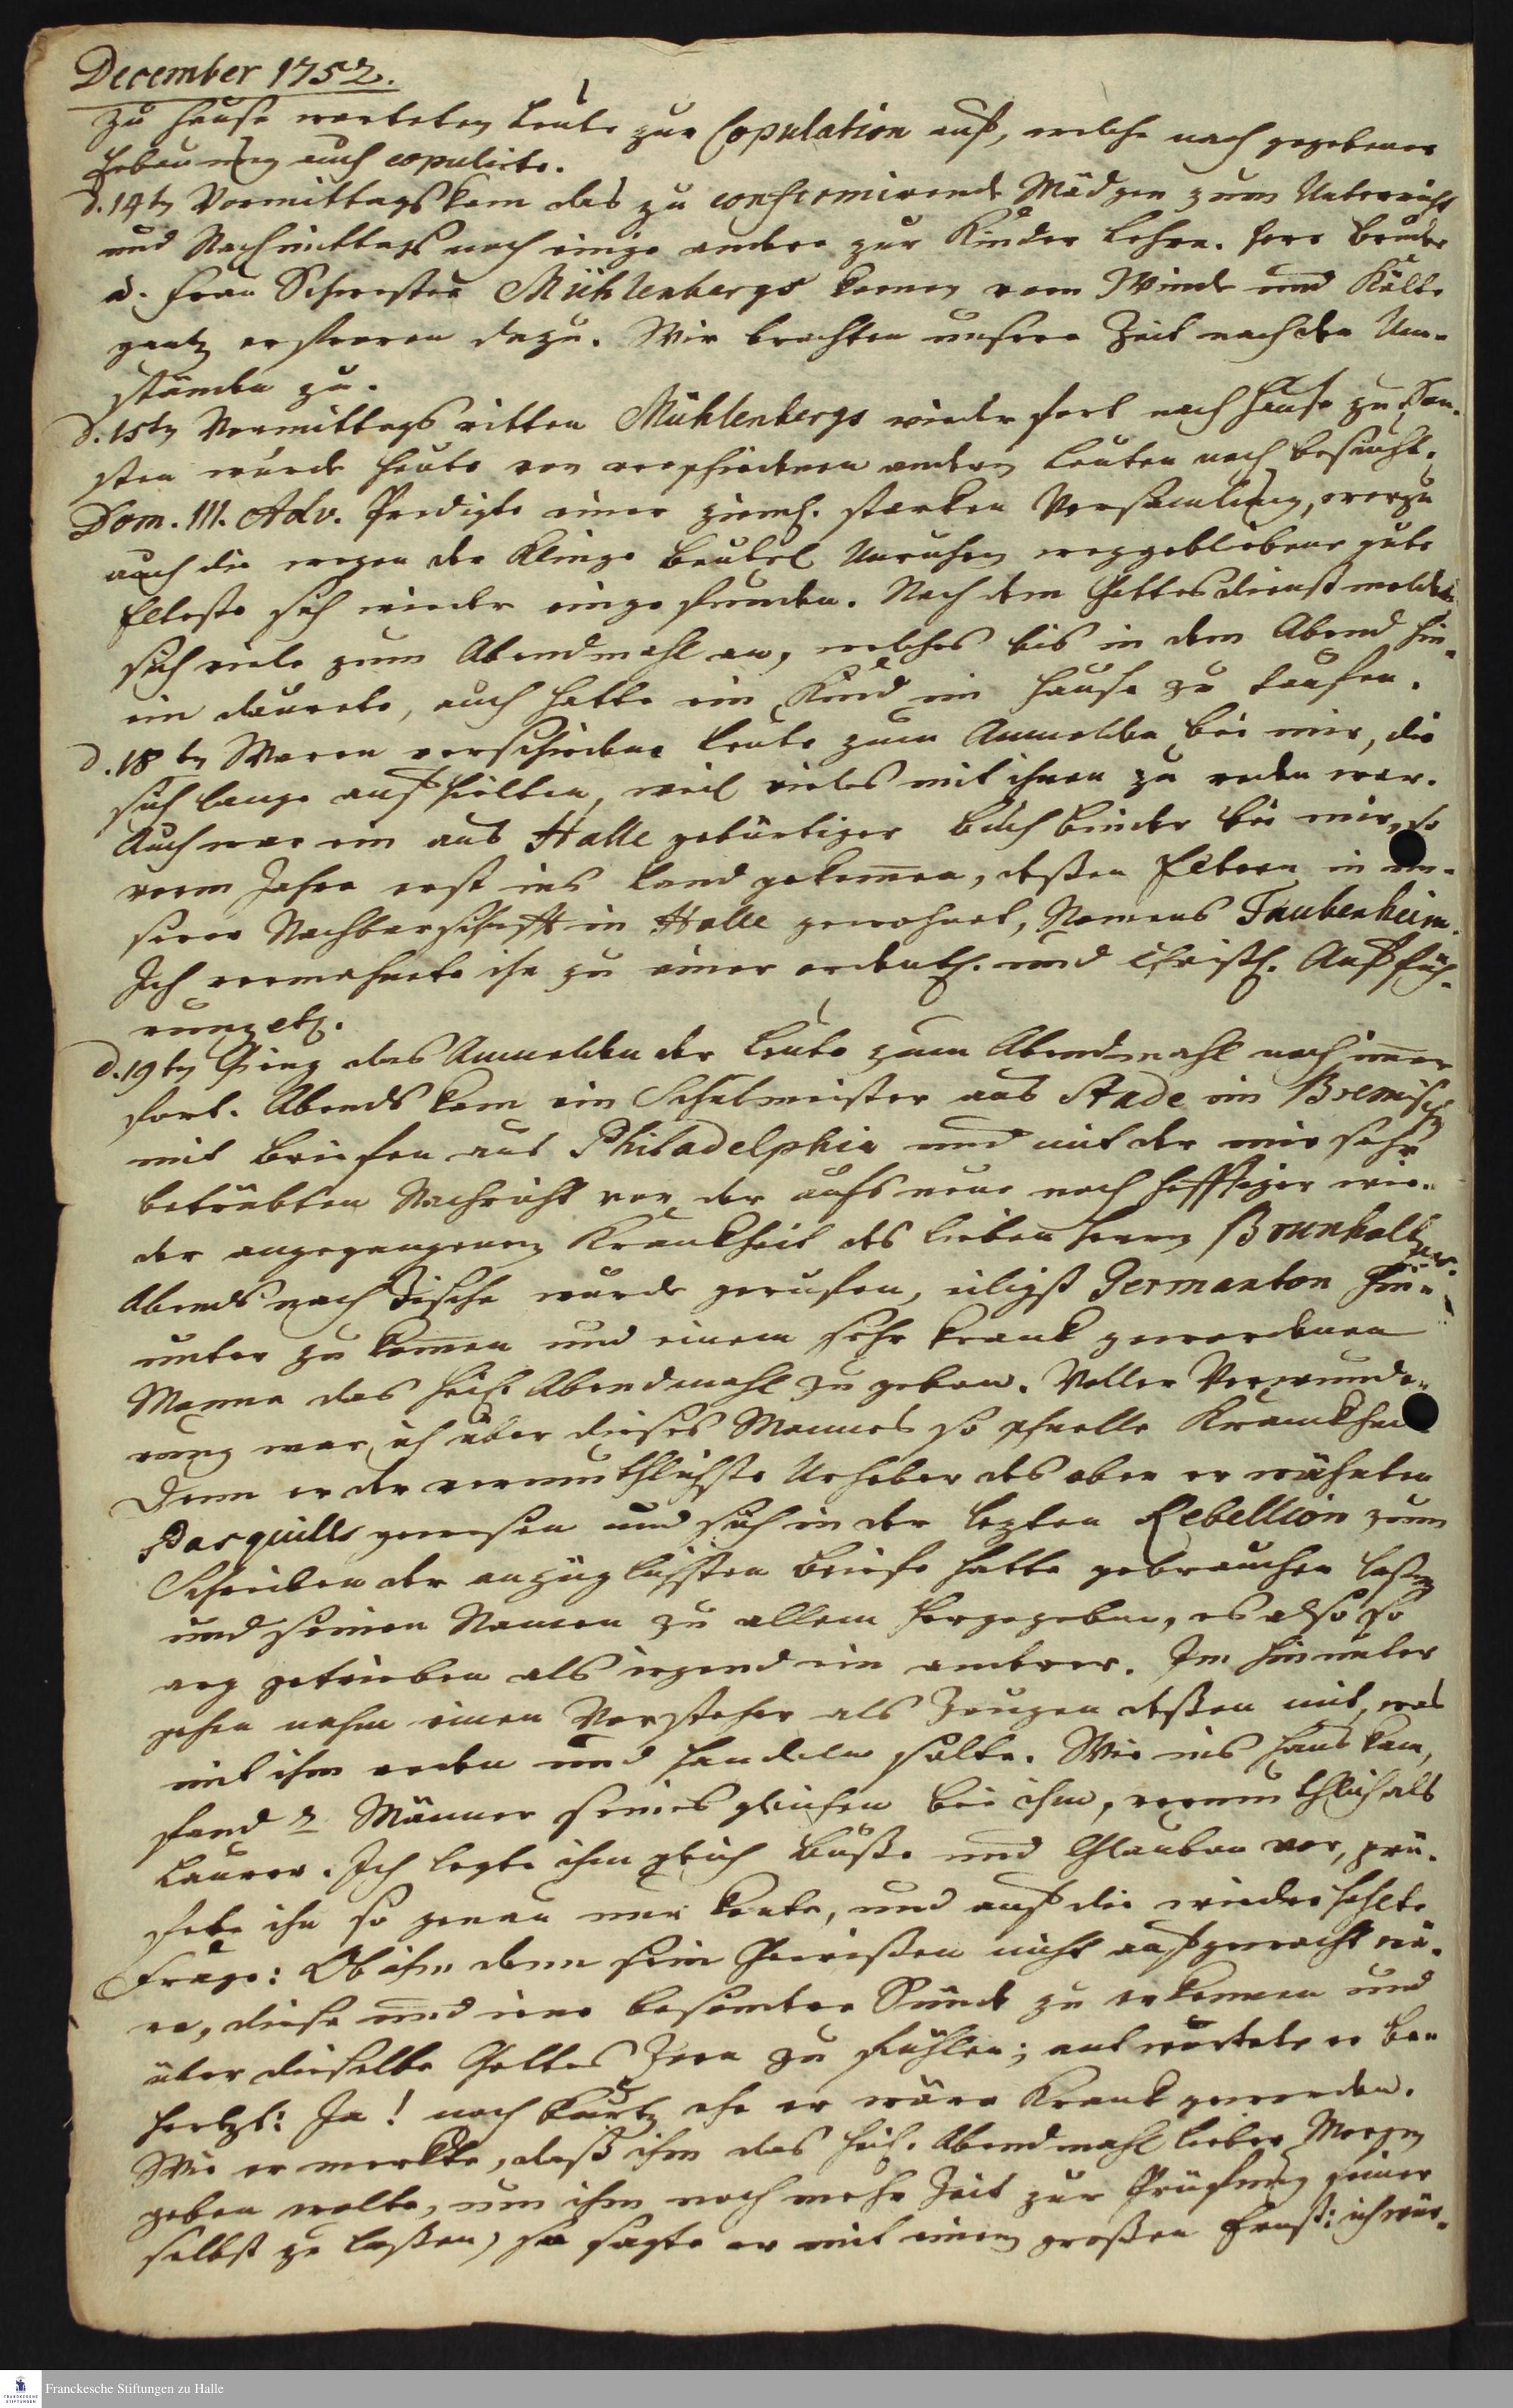 December 1752.
zu Hause warteten Leute zur Copulation auf, welche nach gegebener
auch copulirte.
d. 14tn Vormittags kam das zu confirmirende Mädgen zum Unterricht
und Nachmittags noch einige andere zur Kinder Lehre. Herr Bruder
u. Frau Schwester Mühlenbergs kamen vom Winde und Kälte
gantz erfroren dazu. Wir brachten unsere Zeit nach den Um-
ständen zu.
d. 15tn Vormittags ritten Mühlenbergs wieder fort nach Hause zu. Son-
sten wurde heute von verschiedenen andern Leuten noch besucht.
Dom. III. Adv. Predigte einer ziemh. starken Versamlung, worzu
auch die wegen der Klinge Beutel Unruhen weggebliebene gute
Elteste sich wieder eingefunden. Nach dem Gottesdienst meldete
sich viele zum Abendmahl an, welches bis in dem Abend hin-
ein daurete, auch hatte ein Kind im Hause zu taufen.
d. 18tn Waren verschiedene Leute zum Anmelden bei mir, die
sich lange aufhielten, weil vieles mit ihnen zu reden war.
Auch war ein aus Halle gebürtiger Buchbinder bei mir, so
vorm Jahre erst ins Land gekommen, deßen Eltern in un-
serer Nachbarschafft in Halle gewohnet, Namens Taubenheim.
Ich vermahnete ihn zu einer ordentl. und Christl. Auffüh-
rung etc.
d. 19tn Ging das Anmelden der Leute zum Abendmahl noch immer
fort. Abends kam ein Schulmeister aus Stade im Bremischen
mit Briefen aus Philadelphia und mit der mir sehr
betrübten Nachricht von der aufs neue noch hefftiger wie-
der angegangenen Kranckheit des lieben Herrn Brunholtzens.
Abends nach Tische wurde gerufen, eiligst Germanton hin-
unter zu kommen und einem sehr kranck gewordenen
Manne das heil. Abendmahl zu geben. Voller Verwunde-
rung war ich über dieses Mannes so schnelle Kranckheit
Denn er der vermuthlichste Urheber des oben erwähnten
Pasquills gewesen und sich in der lezten Rebellion zum
Schreiben der anzüglichsten Briefe hatte gebrauchen laßen
und seinen Namen zu allem hergegeben, es also so
arg getrieben als irgend ein anderer. Im hinunter
gehen nahm einen Vorsteher als Zeugen deßen mit, was
mit ihm reden und handeln solte. Wie ins Haus kam,
fand 2 Männer seines gleichen bei ihm, vermuthlich als
Laurer. Ich legte ihm gleich Buße und Glauben vor, prü-
fete ihn so genau nur konte, und auf die wiederhohlte
Frage: Ob ihm denn sein Gewißen nicht aufgewacht wä-
re, diese und jene besondere Sünde zu erkennen und
über dieselbe Gottes Zorn zu fühlen; antwortete er be-
hertzt: Ja! noch kurtz ehe er wäre kranck geworden.
Wie er merkte, daß ihm das heil. Abendmahl lieber Morgen
geben wolte, um ihm noch mehr Zeit zur Prüfung seiner
selbst zu laßen; so sagte er mit einem großen Ernst: ich wür-
Franckesche Stiftungen zu Halle
FRANCKESCHE
STIFTUNGEN